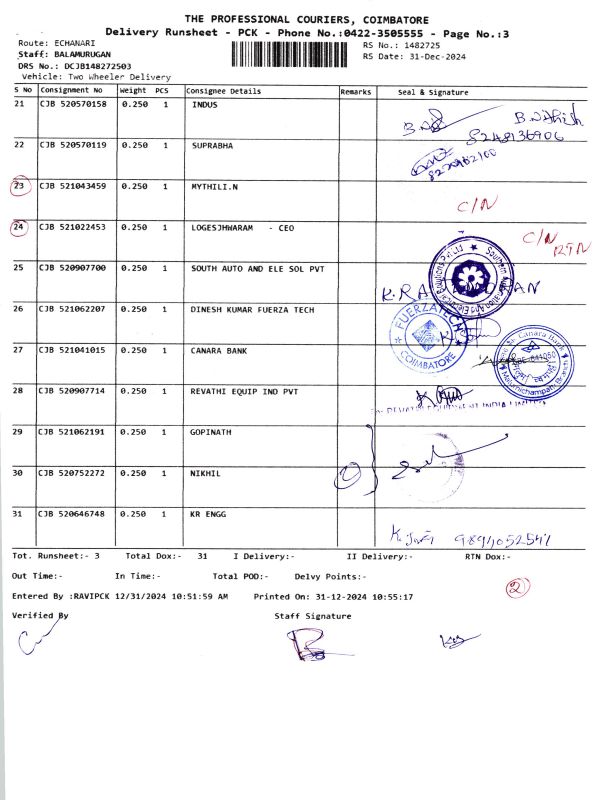 THE PROFESSIONAL COURIERS, COIMBATORE
Delivery Runsheet - PCK - Phone No.:0422-3505555 - Page No.:3
Route: ECHANARI
RS No.: 1482725
Staff: BALAMURUGAN
RS Date: 31-Dec-2024
DRS No.: DCJB148272503
Vehicle: Two Wheeler Delivery
S No Consignment No Weight PCS Consignee Details Remarks Seal & Signature
21 CJB 520570158 0.250 1 INDUS
8248136906
22 CJB 520570119 0.250 1 SUPRABHA
23 CJB 521043459 0.250 1 MYTHILI.N
C/N
24 CJB 521022453 0.250 1 LOGESJHWARAM - CEO
C/N
RTN
25 CJB 520907700 0.250 1 SOUTH AUTO AND ELE SOL PVT
26 CJB 521062207 0.250 1 DINESH KUMAR FUERZA TECH
FUERZATECH
COIMBATORE
27 CJB 521041015 0.250 1 CANARA BANK
Canara Bank
28 CJB 520907714 0.250 1 REVATHI EQUIP IND PVT
29 CJB 521062191 0.250 1 GOPINATH
30 CJB 520752272 0.250 1 NIKHIL
31 CJB 520646748 0.250 1 KR ENGG
Tot. Runsheet:- 3 Total Dox:- 31 I Delivery:- II Delivery:- RTN Dox:-
Out Time:- In Time:- Total POD:- Delvy Points:-
2
Entered By :RAVIPCK 12/31/2024 10:51:59 AM Printed On: 31-12-2024 10:55:17
Verified By Staff Signature